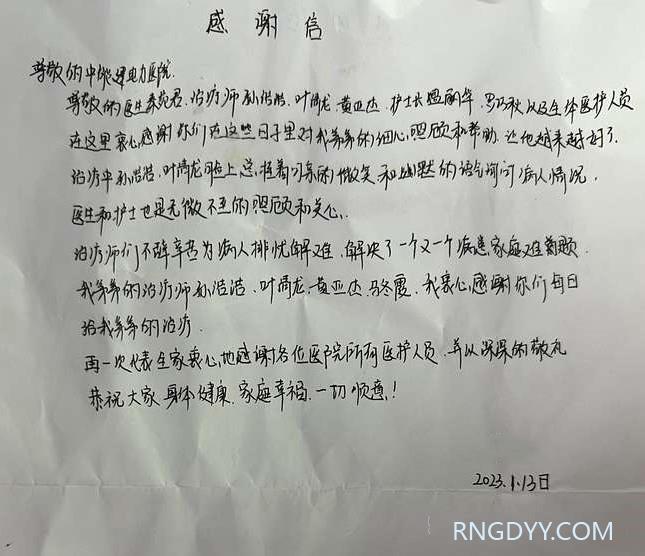 感谢信
尊敬的中能建电力医院.
尊敬的医生秦苑君、治疗师孙浩浩、叶满龙、黄亚杰、护士长温丽华、罗巧秋以及全体医护人员
在这里衷心感谢你们在这些日子里对我爷爷的细心照顾和帮助,让他越来越好了.
治疗中孙浩浩、叶满龙脸上总挂着可亲的微笑和幽默的语气询问病人情况.
医生和护士也是无微不至的照顾和关心.
治疗师们不辞辛苦为病人排忧解难,解决了一个又一个病患家庭难题.
我爷爷的治疗师孙浩浩、叶满龙、黄亚杰、冬霞,我衷心感谢你们每日
给我爷爷的治疗.
再一次代表全家衷心地感谢各位医院所有医护人员,并以深深的敬礼
恭祝大家身体健康、家庭幸福、一切顺意!
2023.1.13日
RNGDYY.COM